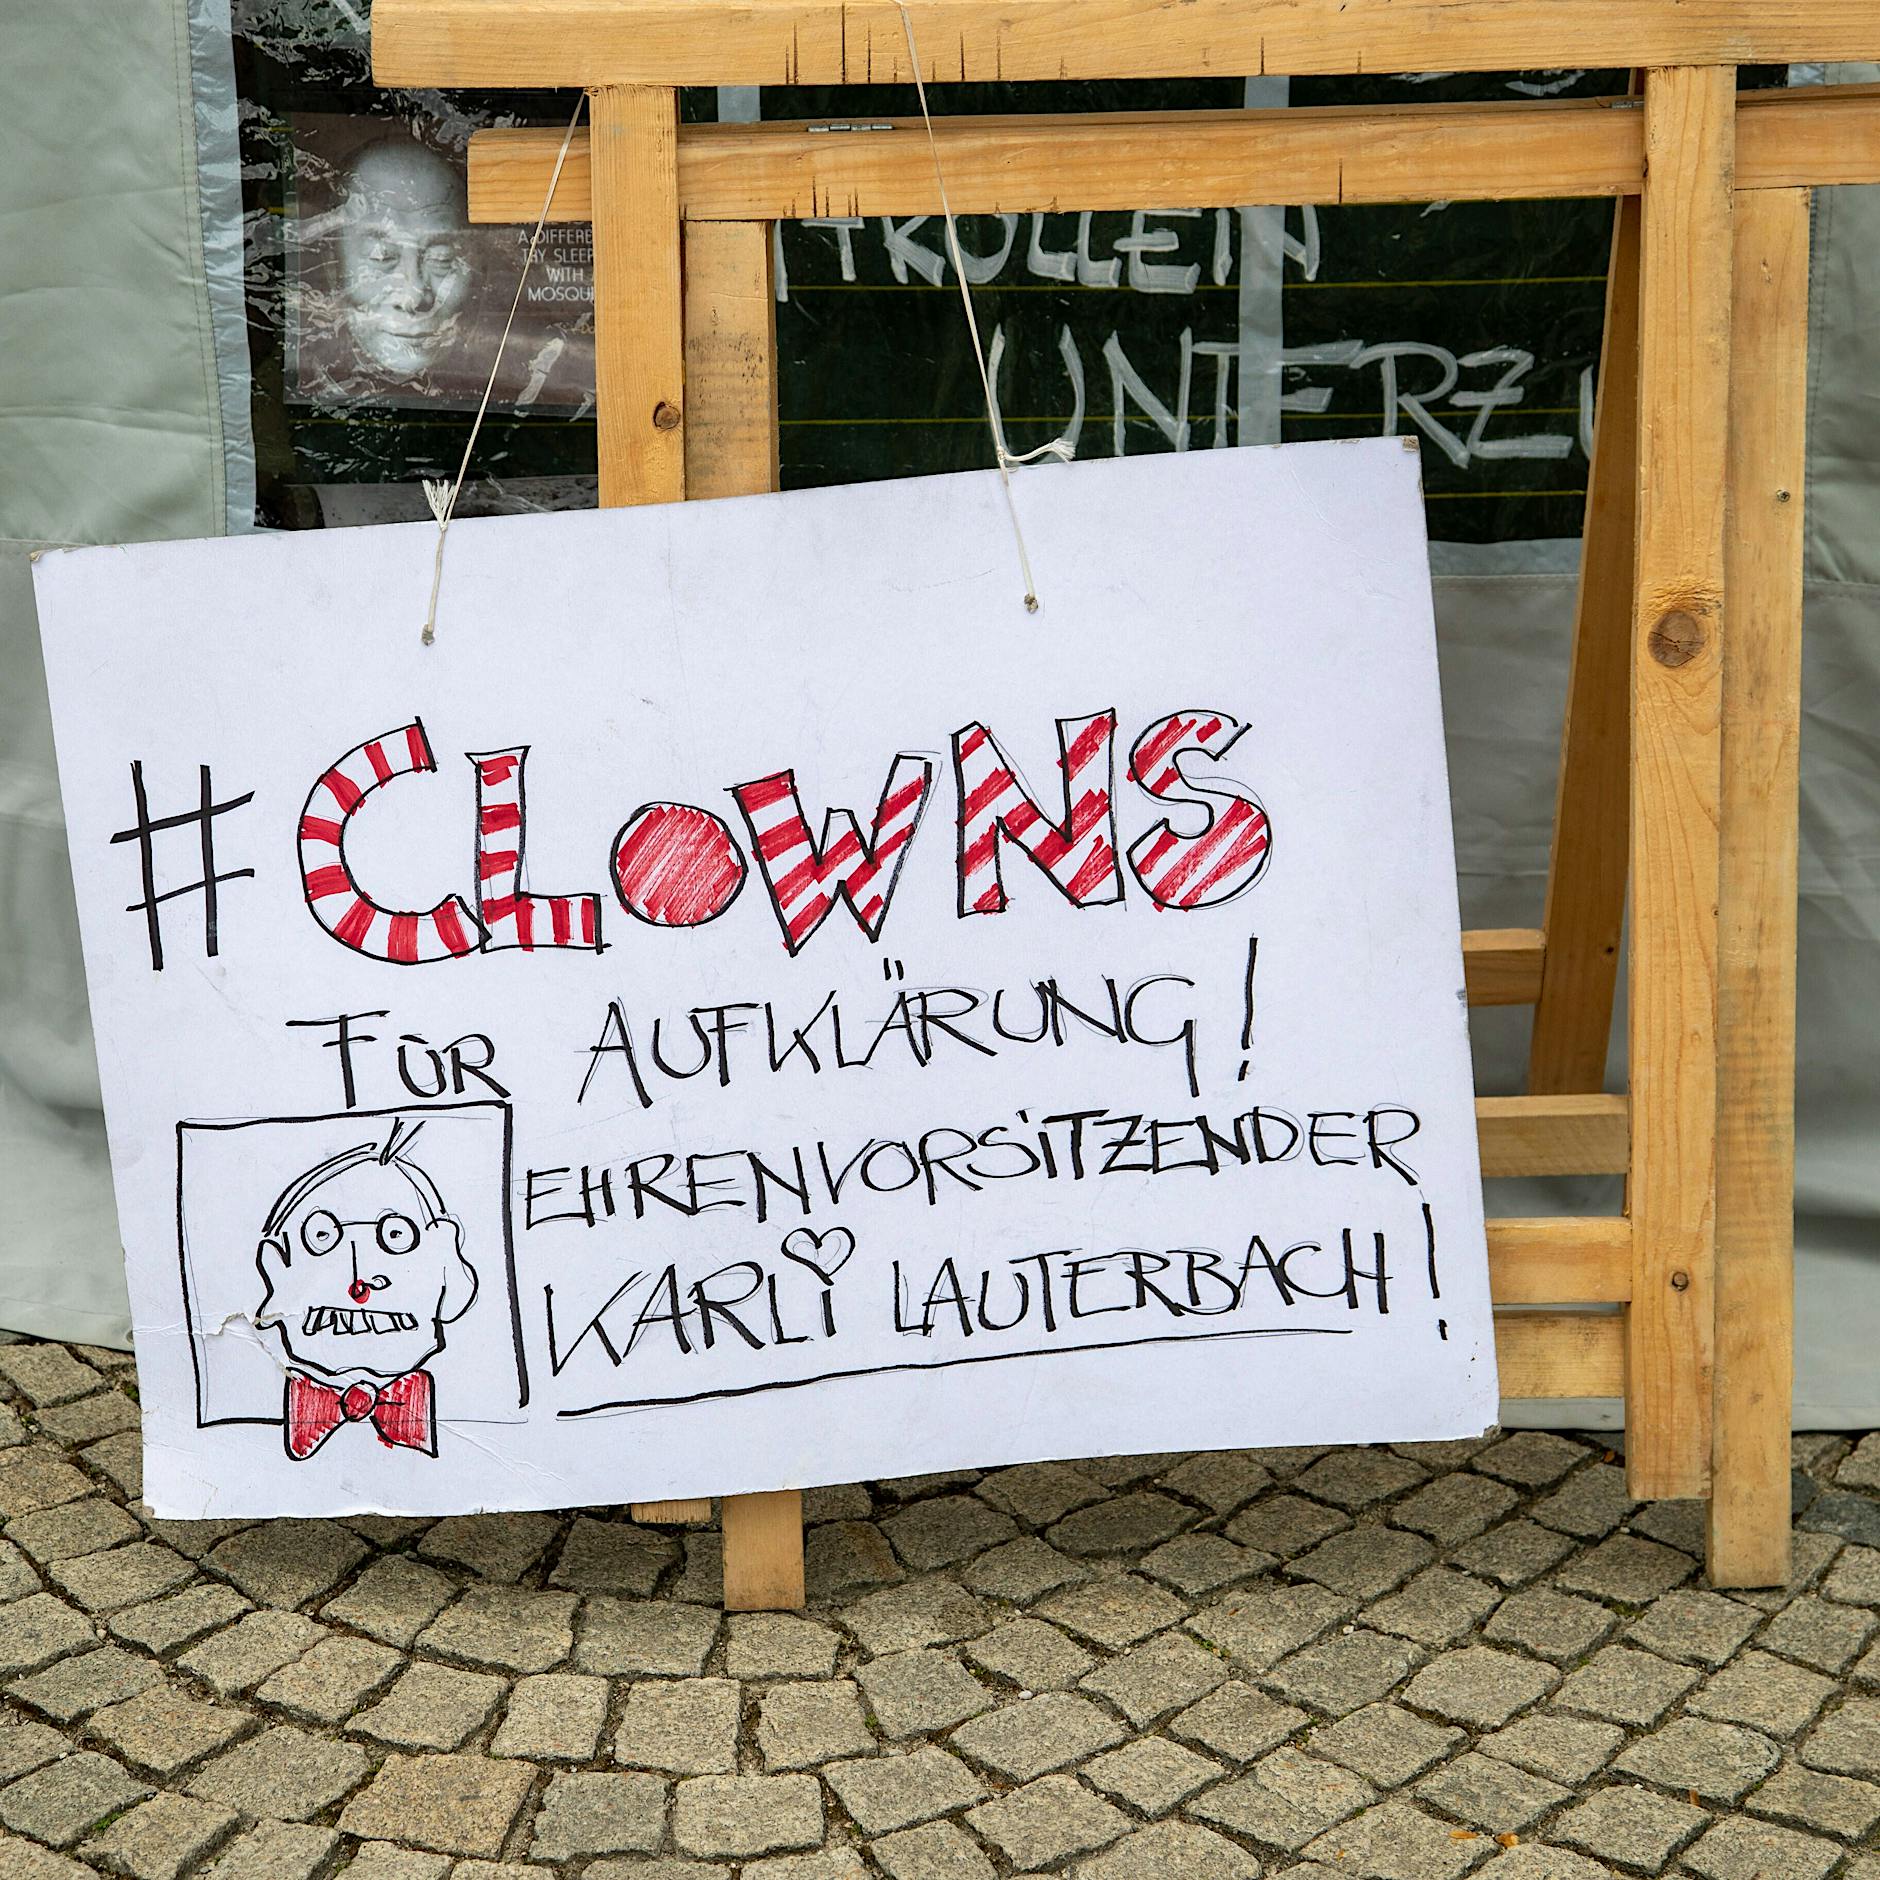 A DIFFERE
TRY SLEEP
WITH
MOSQUI
TROLLEN
UNTERZ
#CLOWNS
FÜR AUFKLÄRUNG!
EHRENVORSITZENDER
KARLI LAUTERBACH!